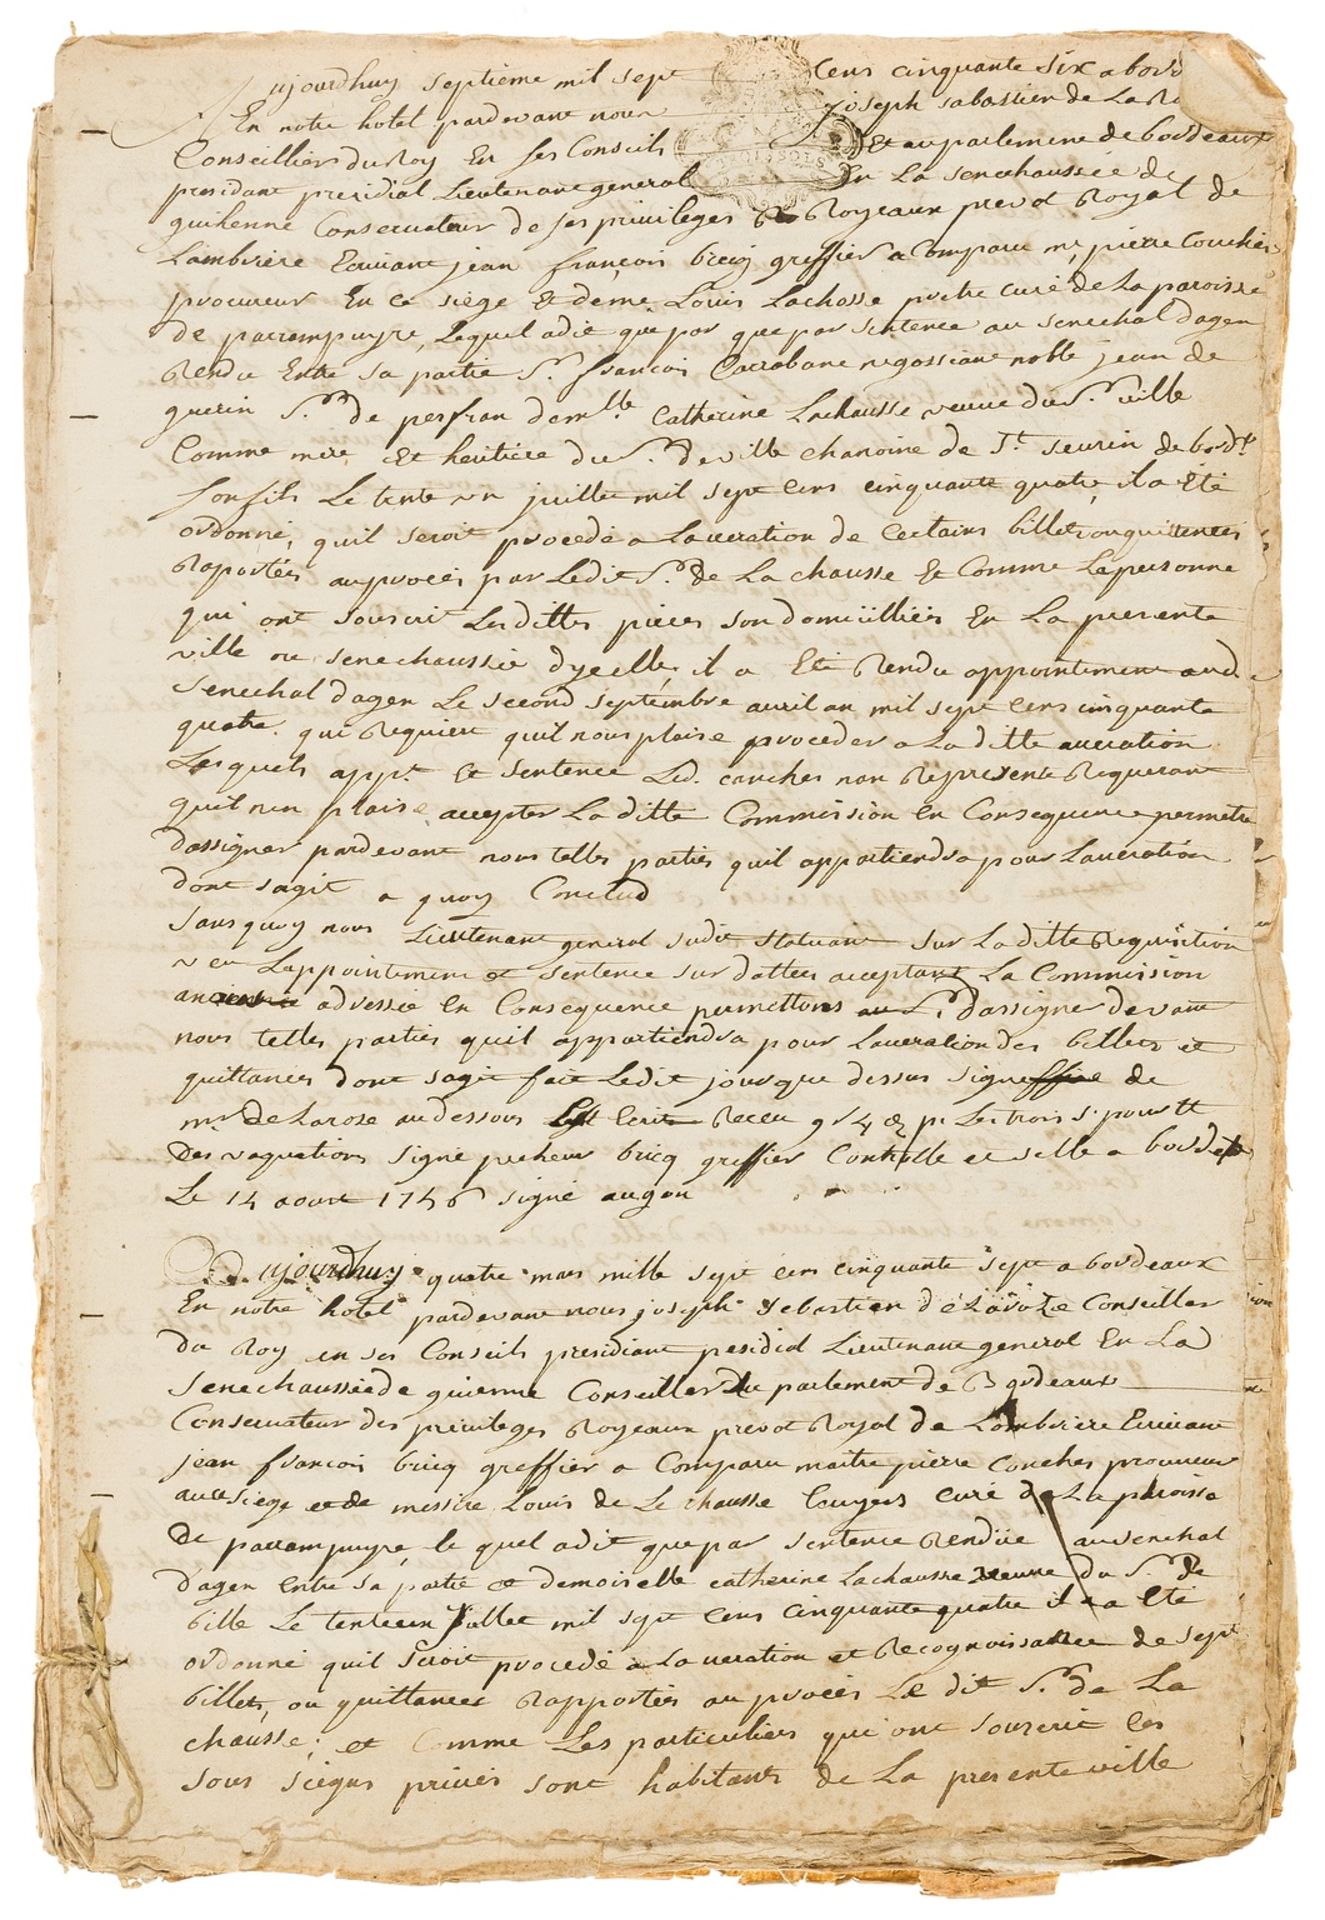 ujourdhuy septieme mil sept cens cinquante six a bord
En notre hotel pardevant nous joseph sabastien de La Ro
Conseillier du Roy En ses Conseils Et au parlement de bordeaux
presidant presidial Lieutenant general En La senechaussée de
guihenne Conservateur de ses privileges Royeaux prevot Royal de
Lambriere Ecrivant jean françois bricq greffier a Comparu me pierre Couches
procureur En ce siege Et de me Louis Lachosse pretre curé de La paroisse
de parrempuyre, Lequel a dit que par que par sentence au senechal dagen
Rendu Entre sa partie Sr. françois Carrabane negossiant noble jean de
guerin Sr. de perfran demlle. Catherine Lachausse veuve du Sr. ville
Comme mere Et heritiere du Sr. de ville chanoine de St. seurin de bordx.
son fils Le tente un juillet mil sept cens cinquante quatre, il a Eté
ordonné, quil seroit procedé a Laveration de Certains billets ou quittences
Raportés au procés par Ledit Sr. de La chausse Et Comme Le personne
qui ont souscrit Lesdittes pieces son domicilliés En La presente
ville ou senechaussée dycelle, il a Eté Rendu appointement aud.
Senechal dagen Le second septembre avril an mil sept cens cinquante
quatre. qui Requiere quil nous plaise proceder a La ditte averation
Lesquels appt. Et sentence Led. couches nous Represente Requerant
quil nen plaise accepter La ditte Commission En Consequence permetre
dassigner pardevant nous telles parties quil appartiendra pour Laveration
dont sagit a quoy Conclud
Sur quoy nous Lieutenant general susdit statuant sur La ditte Requisition
veu Lappointement et sentence sur dattees acceptant La Commission
adressée En Consequence permettons au Sr. dassigner devant
nous telles parties quil appartiendra pour Laveration des billets et
quittances dont sagit fait Ledit jour que dessus signe de
mr. de Larose au dessous Est Ecrit Receu Les trois s. pour tt
Des vaquations signé pecheur bricq greffier Controlle et selle a bordx
Le 14 aout 1756 signé augon
Aujourdhuy quatre mars mille sept cens cinquante sept a bordeaux
En notre hotel pardevant nous joseph Sebastien de Laroze Conseiller
du Roy en ses Conseils presidiant presidial Lieutenant general En La
Senechaussée de guienne Conseiller Au parlement de Bordeaux
Conservateur des privileges Royeaux prevot Royal de Lombriere Ecrivant
jean françois bricq greffier a Comparu maitre pierre Couches procureur
au ce siege et de messire Louis de Le chausse Ecuyers curé de La paroisse
de parrempuyre, le quel a dit que par sentence Rendüe au senechal
dagen Entre sa partie et demoiselle catherine Lachausse veuve du Sr. de
bille Le tenteun Juillet mil sept cens cinquante quatre il a Eté
ordonné quil seroit procedé a La veration et Recognoissance de sept
billets, ou quittances Rapportés au procés Le dit Sr. de La
chausse; et Comme Les particuliers qui ont souscrit les
sous siegns privés sont habitants de La presente ville